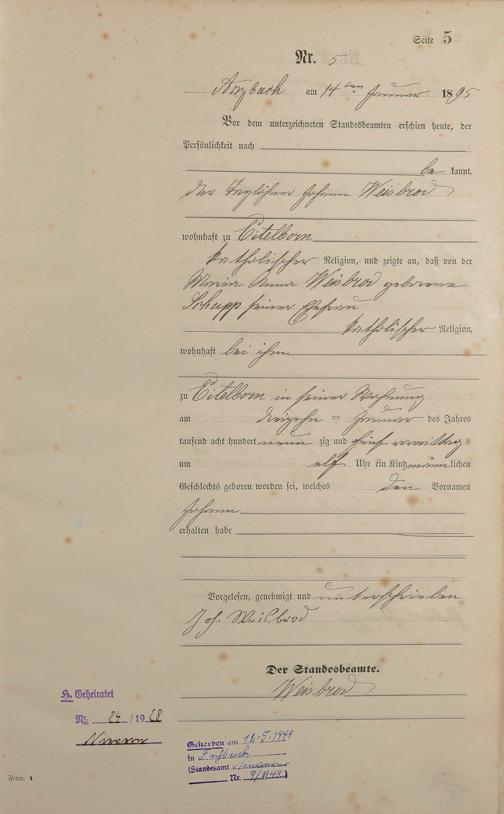 Seite 5
Nr. 5
Arzbach am 14ten Januar 1895
Vor dem unterzeichneten Standesbeamten erschien heute, der
Persönlichkeit nach
be kannt,
der Taglöhner Johann Weisbrod
wohnhaft zu Eitelborn
katholischer Religion, und zeigte an, daß von der
Maria Anna Weisbrod geborene
Schupp seiner Ehefrau
katholischer Religion,
wohnhaft bei ihm
zu Eitelborn in seiner Wohnung
am dreizehn ten Januar des Jahres
tausend acht hundert neun zig und fünf vormittags
um elf Uhr ein Kind männlichen
Geschlechts geboren worden sei, welches den Vornamen
Johann
erhalten habe
Vorgelesen, genehmigt und unterschrieben
Joh. Weisbrod
Der Standesbeamte.
Weisbrod
H. Geheiratet
Nr. 24 / 1928
Gestorben am 12.5.1949
in
(Standesamt
Nr. 9/1949)
Form. A.